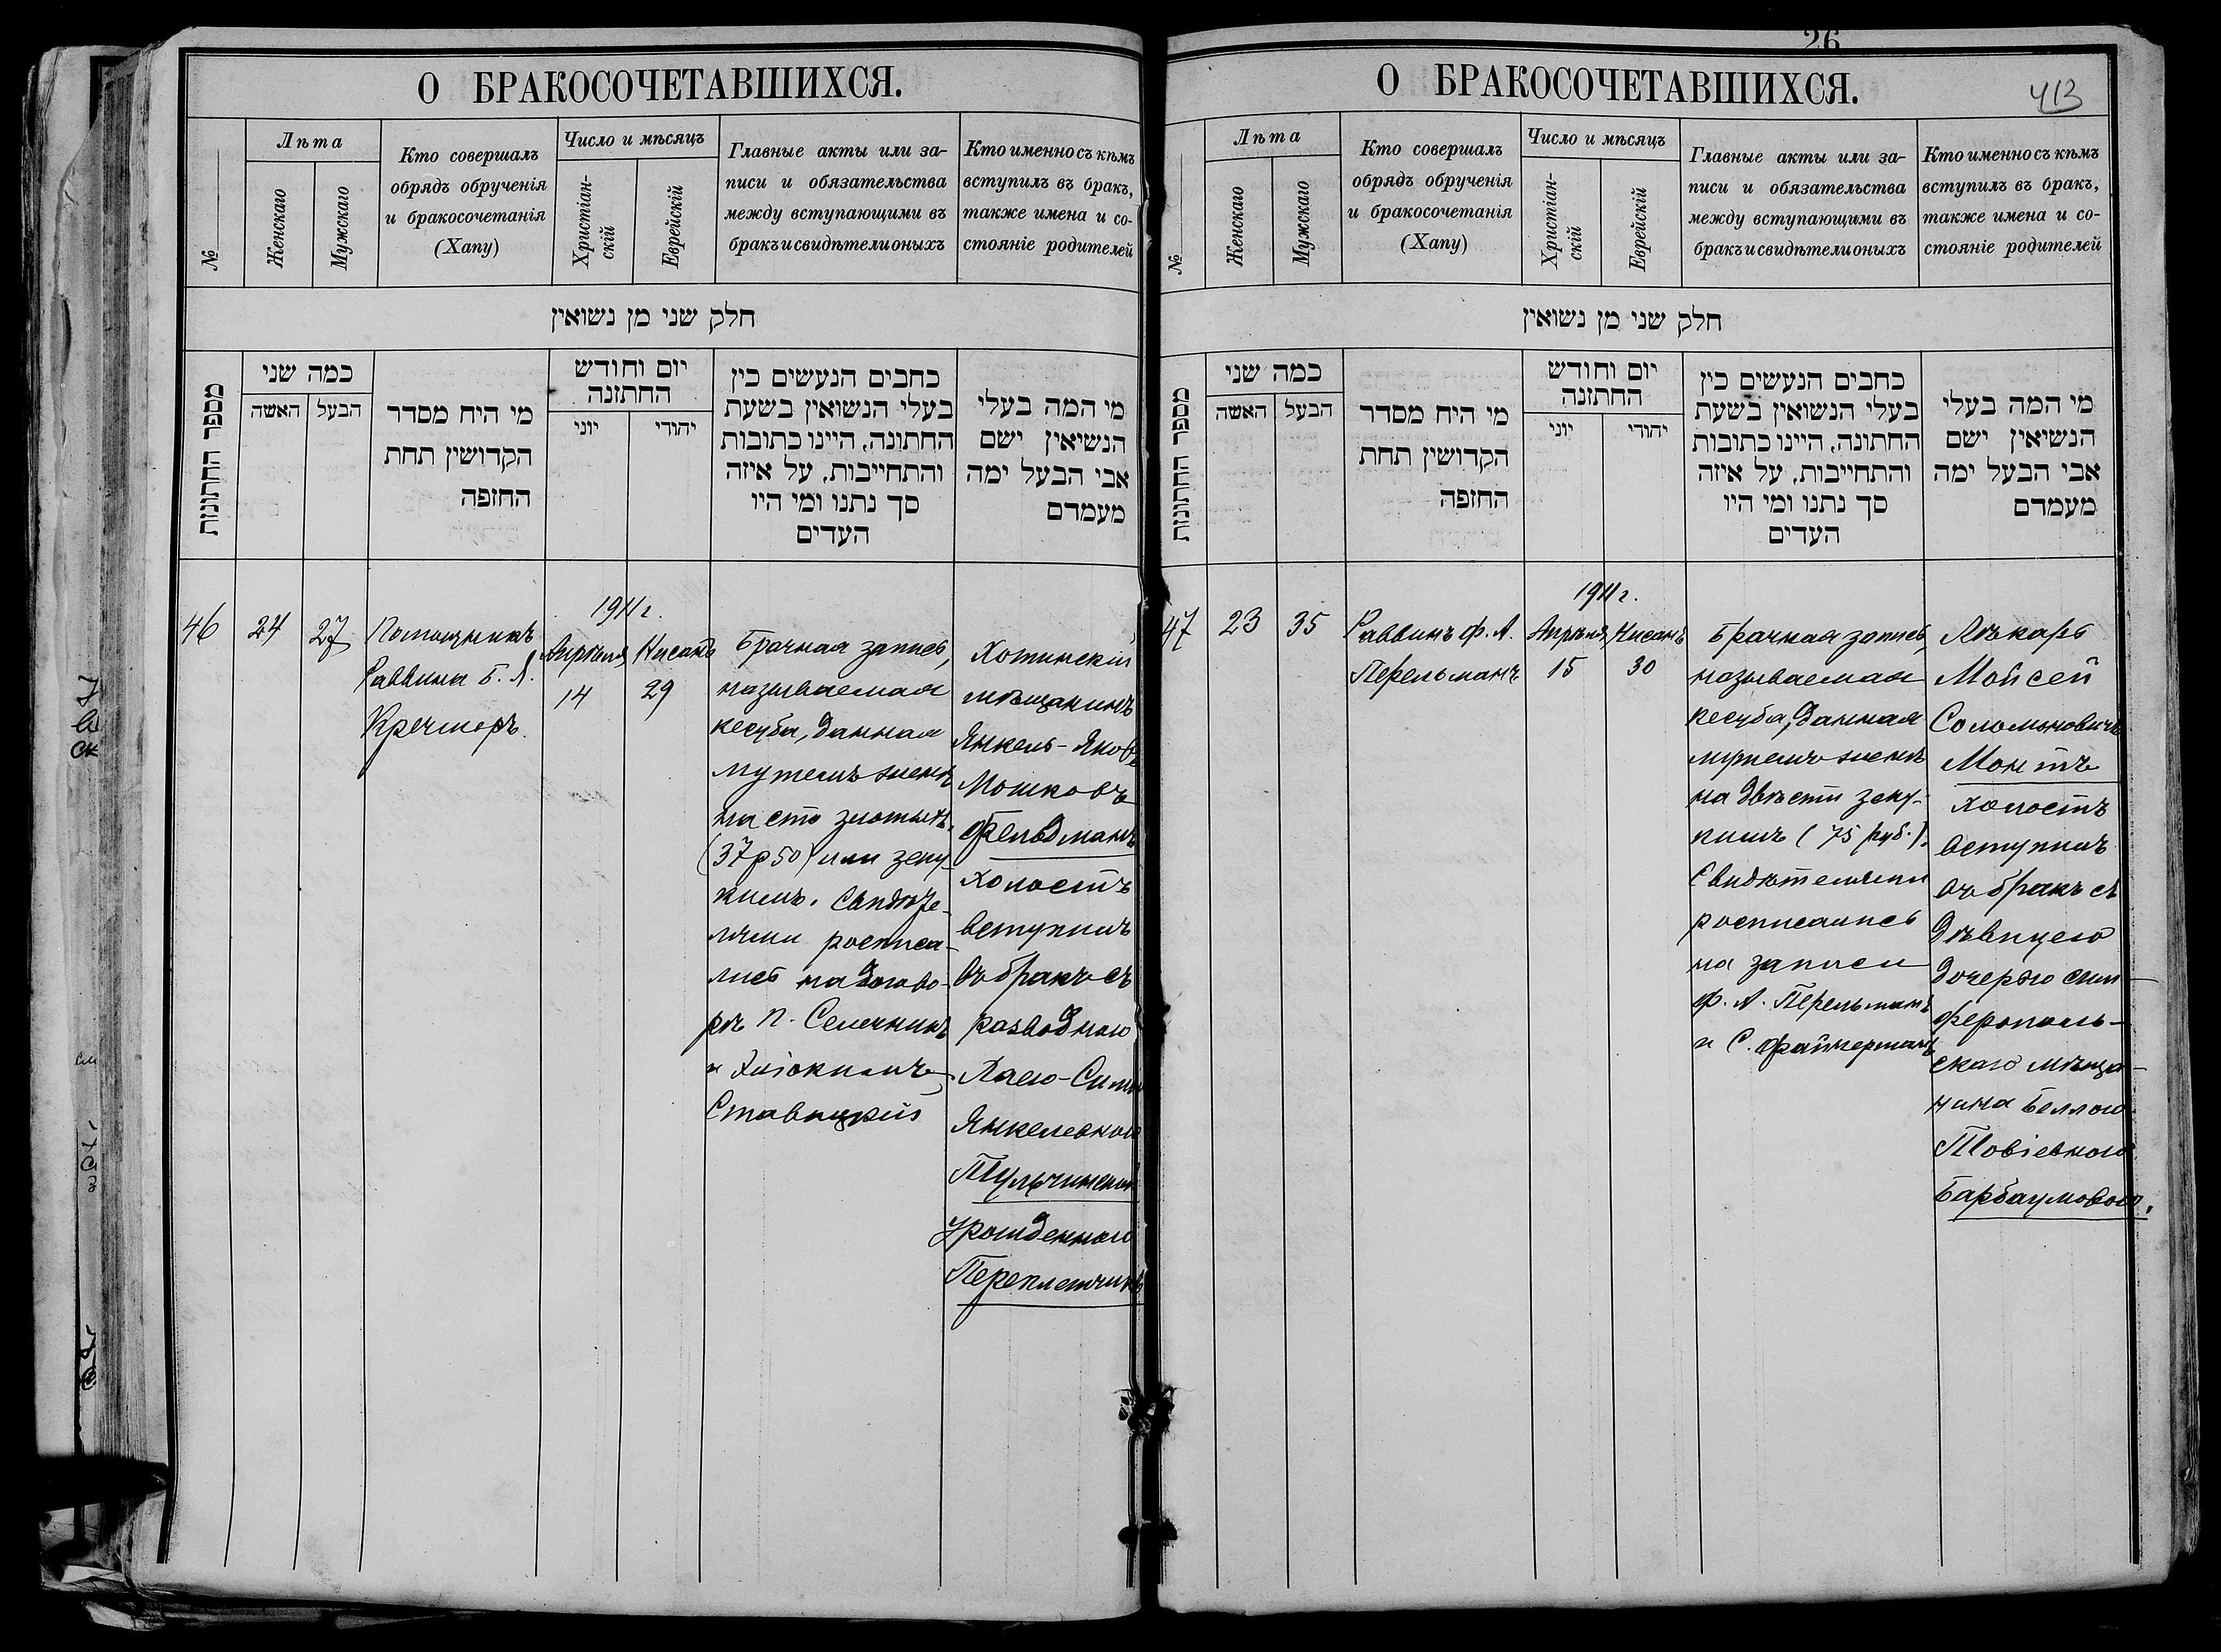 О БРАКОСОЧЕТАВШИХСЯ.
№
Лѣта
Женскаго
Мужскаго
Кто совершалъ
обрядъ обрученія
и бракосочетанія
(Хапу)
Число и мѣсяцъ
Христіан-
скій
Еврейскій
Главные акты или за-
писи и обязательства
между вступающими въ
бракъ и свидѣтели оныхъ
Кто именно съ кѣмъ
вступилъ въ бракъ,
также имена и со-
стояніе родителей
חלק שני מן נשואין
מספר החתונות
כמה שני
האשה
הבעל
מי היח מסדר
הקדושין תחת
החופה
יום וחודש
החתונה
יוני
יהודי
כתבים הנעשים בין
בעלי הנשואין בשעת
החתונה, היינו כתובות
והתחייבות, על איזה
סך נתנו ומי היו
העדים
מי המה בעלי
הנשיאין ישם
אבי הבעל ימה
מעמדם
46
24
27
Помощникъ
Раввина Б. Л.
Кречмеръ
1911 г.
Апрѣля
14
Нисанъ
29
Брачная запись,
называемая
кесуба, данная
мужемъ женѣ
на сто злотыхъ,
(37 р 50) или зеку-
кимъ. Свидѣте-
лями росписа-
лись на догово-
рѣ П. Селечникъ
и
Ставицкій
Хотинскій
мѣщанинъ
Янкель-Яковъ
Мошковъ
Фельдманъ
холостъ
вступилъ
въ бракъ съ
разводною
Хаею-
Янкелевною
Тульчинскою
урожденною
Переплетчикъ
26
О БРАКОСОЧЕТАВШИХСЯ.
413
№
Лѣта
Женскаго
Мужскаго
Кто совершалъ
обрядъ обрученія
и бракосочетанія
(Хапу)
Число и мѣсяцъ
Христіан-
скій
Еврейскій
Главные акты или за-
писи и обязательства
между вступающими въ
бракъ и свидѣтели оныхъ
Кто именно съ кѣмъ
вступилъ въ бракъ,
также имена и со-
стояніе родителей
חלק שני מן נשואין
מספר החתונות
כמה שני
האשה
הבעל
מי היח מסדר
הקדושין תחת
החופה
יום וחודש
החתונה
יוני
יהודי
כתבים הנעשים בין
בעלי הנשואין בשעת
החתונה, היינו כתובות
והתחייבות, על איזה
סך נתנו ומי היו
העדים
מי המה בעלי
הנשיאין ישם
אבי הבעל ימה
מעמדם
47
23
35
Раввинъ Ф. А.
Перельманъ
1911 г.
Апрѣля
15
Нисанъ
30
Брачная запись,
называемая
кесуба, данная
мужемъ женѣ
на двѣсти зеку-
кимъ (75 руб.).
Свидѣтелями
росписались
на записи
Ф. А. Перельманъ
и С. Файнгерманъ
Лѣкарь
Мойсей
Соломоновичъ
Монтъ
холостъ
вступилъ
въ бракъ съ
дѣвицею
дочерью сим-
ферополь-
скаго мѣща-
нина Беллою
Товіевною
Барбаумовою.